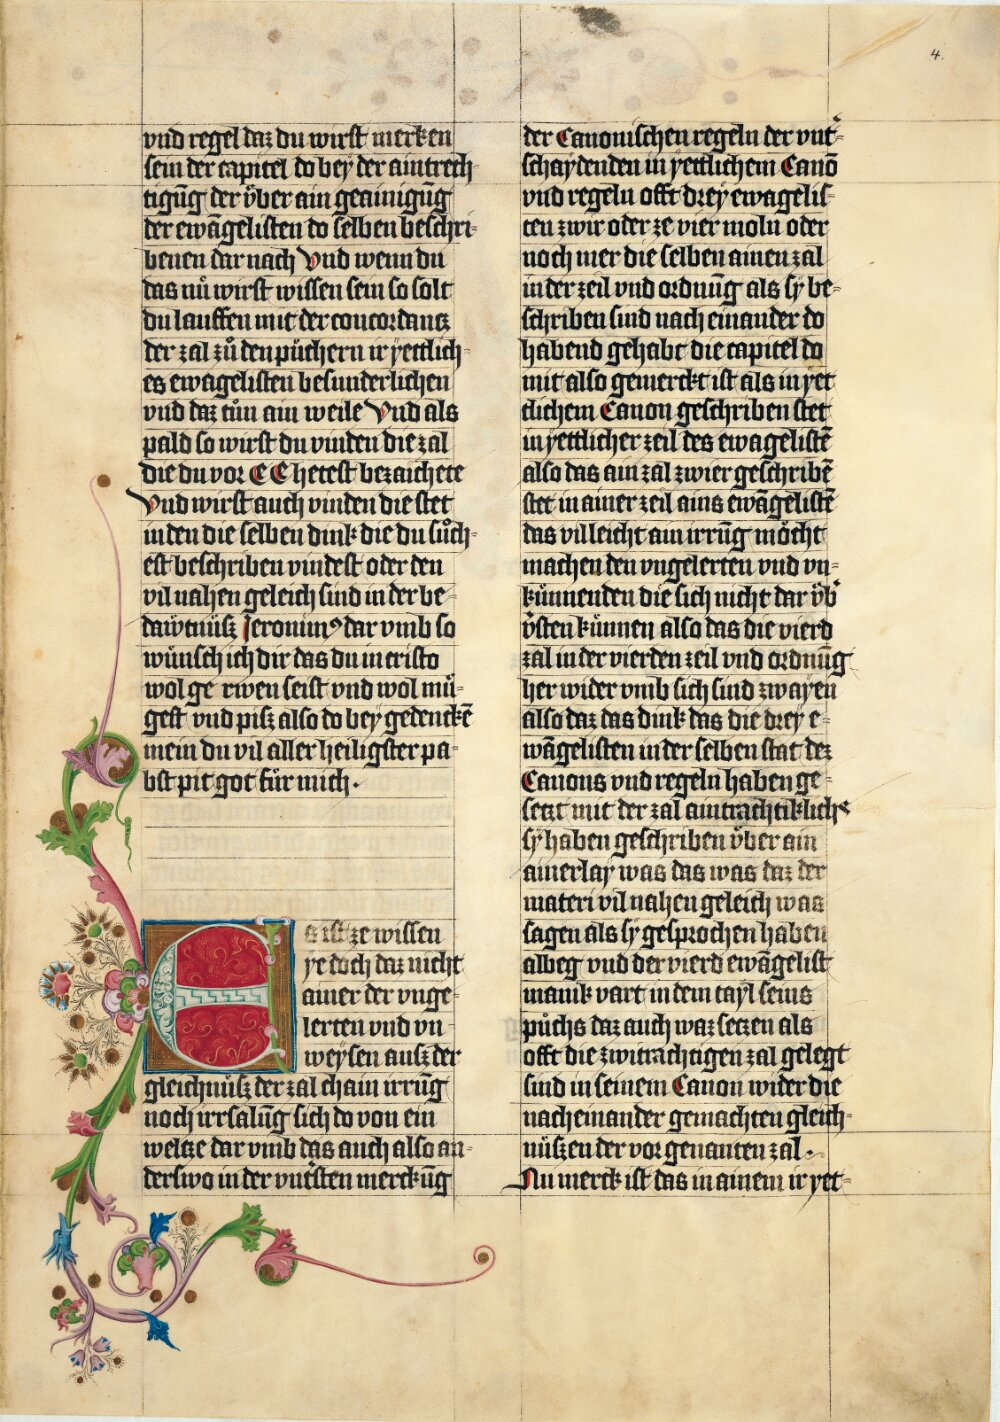 4.
vnd regel daz du wirst merken
sein der capitel do bey der aintrech-
tigūg der vͤber ain geainigūg
der ewāgelisten do selben beschri-
benen dar nach Vnd wenn du
das nu wirst wissen sein so solt
du lauffen mit der concordantz
der zal zů den půchern ir yettlich-
es ewagelisten besunderlichen
vnd daz tůn ain weile Vnd als
pald so wirst du vinden die zal
die du vor CC hetest bezaichete
Vnd wirst auch vinden die stet
in den die selben dink die du sůch-
est beschriben vindest oder den
vil nahen geleich sind in der be-
dawtnüsz Jeronimꝰ dar vmb so
wünsch ich dir das du in cristo
wol ge rwen seist vnd wol mü-
gest vnd pisz also do bey gedenckē
mein du vil aller heiligster pa-
bst pit got für mich.
Es ist ze wissen
ye doch daz nicht
ainer der vnge-
lerten vnd vn-
weysen ausz der
gleichnüsz der zal chain irrūg
noch irrsalūg sich do von ein
weltze dar vmb das auch also an-
derswo in der vntsten merckūg
der Canonischen regeln der vnt-
schaydenden in yettlichem Canō
vnd regeln offt drey ewagelis-
ten zwir oder ze vier moln oder
noch mer die selben ainen zal
in der zeil vnd ordnūg als sy be-
schriben sind nach einander do
habend gehabt die capitel do
mit also gemerckt ist als in yet
tlichem Canon geschriben stet
in yettlicher zeil des ewagelistē
also das ain zal zwier geschribē
stet in ainer zeil ains ewāgelistē
das villeicht ain irrūg möcht
machen den vngelerten vnd vn-
künnenden die sich nicht dar vͤb
vͤsten künnen also das die vierd
zal in der vierden zeil vnd ordnūg
her wider vmb sich sind zwayen
also daz das dink das die drey e-
wāgelisten in der selben stat dez
Canons vnd regeln haben ge-
setzt mit der zal aintrachtiklichs
sy haben geschriben vͤber ain
ainerlay was das was daz der
materi vil nahen geleich was
sagen als sy gesprochen haben
albeg vnd der vierd ewāgelist
manik vart in dem tayl seins
půchs daz auch waz setzen als
offt die zwitrachtigen zal gelegt
sind in seinem Canon wider die
nach einander gemachten gleich-
nüszen der vor genanten zal.
Nu merck ist das in ainem ir yet-